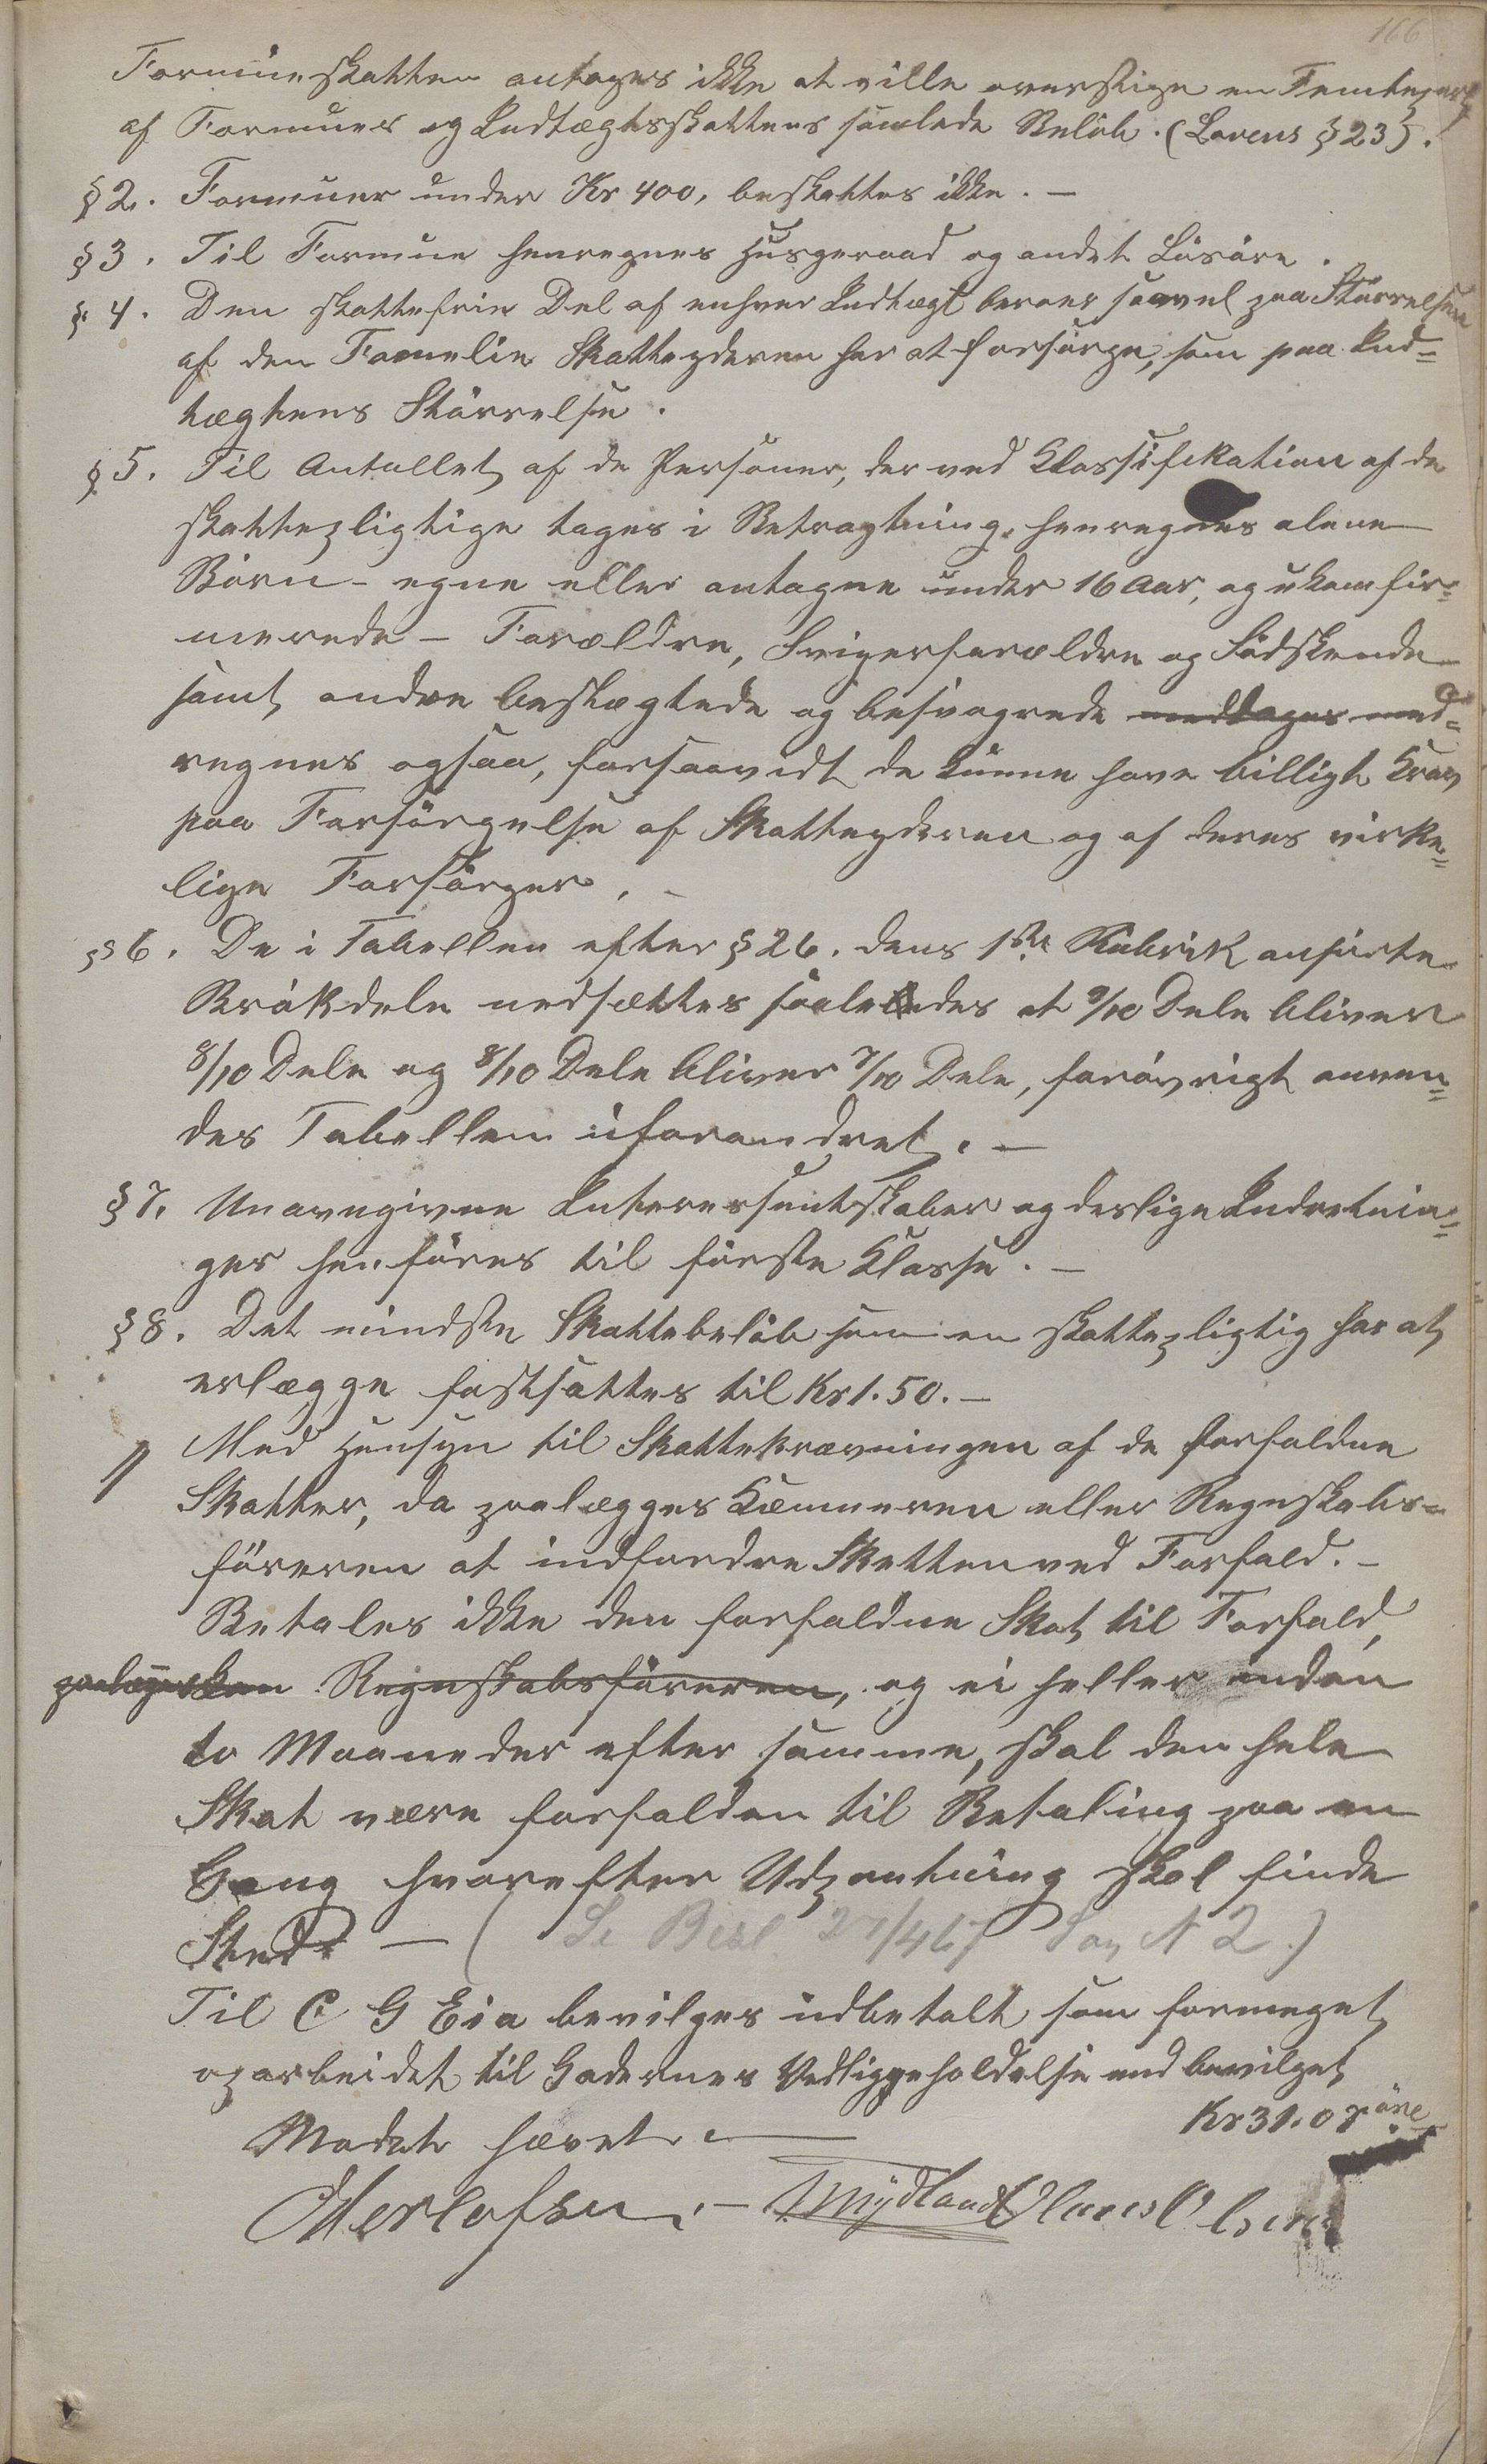 166
Formueskatten antages ikke at ville overstige en Femtepart
af Formues og Indtægtsskattens samlede Beløb. (Lovens §23).
§2. Formuer under Kr 400, beskattes ikke. —
§3. Til Formue henregnes Husgeraad og andet Løsøre.
§ 4. Den skattefrie Del af enhver Indtægt beroer saavel paa Størrelsen
af den Familie Skatteyderen har at forsørge, som paa Ind=
tægtens Størrelse.
§5. Til Antallet af de Personer, der ved Klassifikation af de
skattepligtige tages i Betragtning, henregnes alene
Børn – egne eller antagne under 16 Aar, og ukonfir=
merede – Forældre, Svigerforældre og Sødskende
samt andre beslægtede og besvogrede meddages med=
regnes ogsaa, forsaavidt de kunne have billigt Krav
paa Forsørgelse af Skatteyderen og af deres virke=
lige Forsørger. –
§6. De i Tabellen efter §26. dens 1ste Rubrik anførte
Brøkdele nedsættes saaledes at 9/10 Dele bliver
8/10 Dele og 8/10 Dele bliver 7/10 Dele, forøvrigt anven=
des Tabellen uforandret. —
§7. Unavngivne Interessentskaber og deslige Indretnin=
ger henføres til første Klasse. –
§8. Det mindste Skattebeløb som en skattepligtig har at
erlægge fastsættes til Kr 1.50. –
// Med Hensyn til Skattekrævningen af de forfaldne
Skatter, da paalægges Kæmneren eller Regnskabs=
føreren at indfordre Skatten ved Forfald. –
Betales ikke den forfaldne Skat til Forfald,
paalægges den Regnskabsføreren, og ei heller inden
to Maaneder efter samme, skal den hele
Skat være forfalden til Betaling paa en
Gang hvorefter Udpantning skal finde
Sted. — ( Se Besl. 27/4 67 Sag N 2.)
Til C G Eia bevilges udbetalt som formeget
oparbeidet til Gadernes Vedligeholdelse end bevilget
Kr 31.08 øre
Mødet hævet. —
Merlofsen. – Mydland Claus Olsen